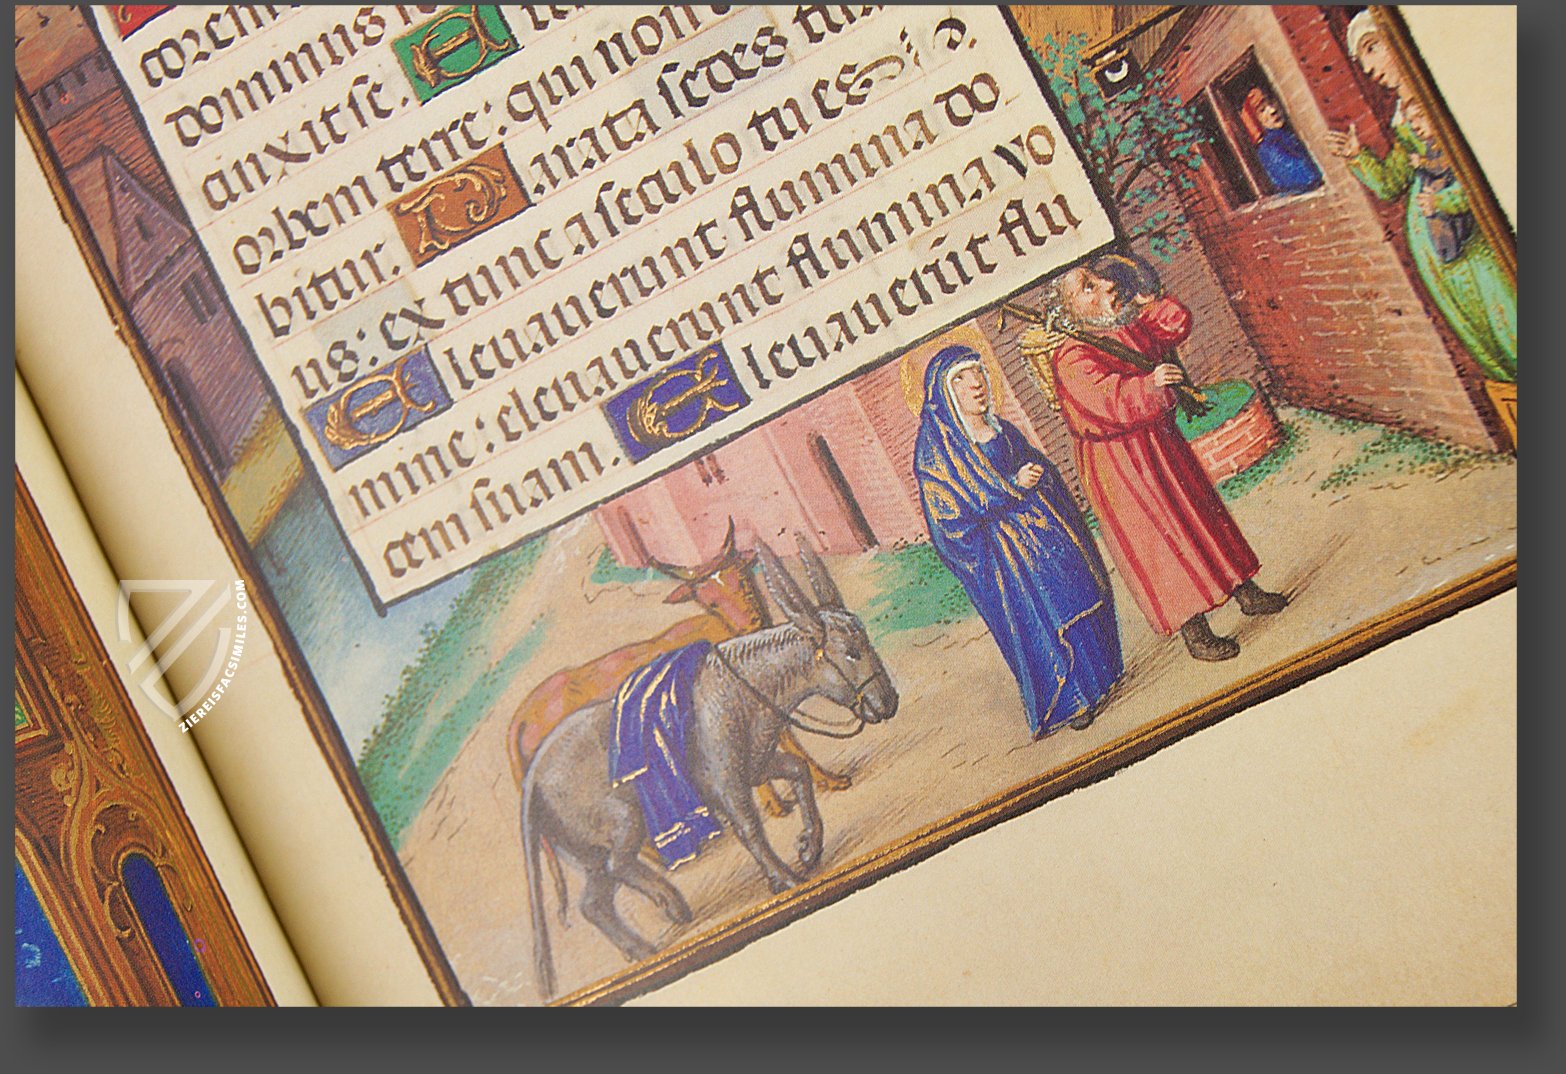 dominus
cinxit se. E
orbem terre: qui non
bitur. Parata sedes
us: ex tunc a seculo tu es
Eleuauerunt flumina do
mine: eleuauerunt flumina vo
cem suam. Eleuauerūt flu
ZIEREISFACSIMILES.COM